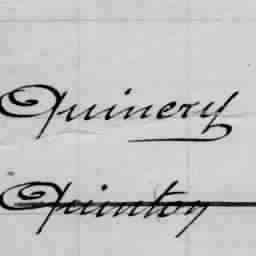 Quinery
Quinton